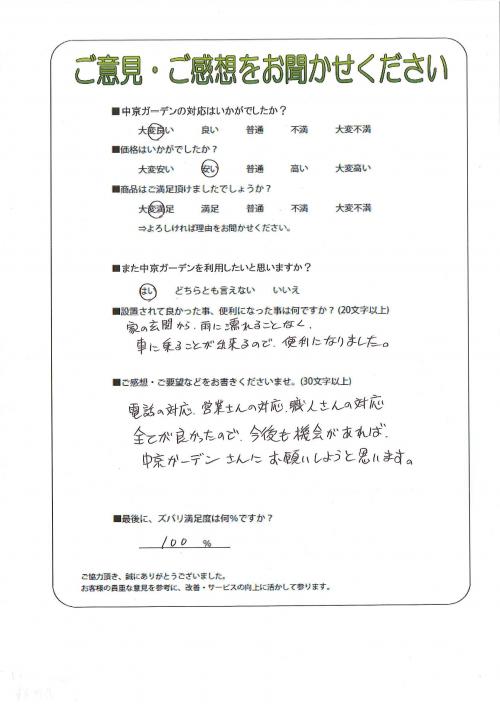 ご意見・ご感想をお聞かせください
■中京ガーデンの対応はいかがでしたか？
大変良い 良い 普通 不満 大変不満
■価格はいかがでしたか？
大変安い 安い 普通 高い 大変高い
■商品はご満足頂けましたでしょうか？
大変満足 満足 普通 不満 大変不満
⇒よろしければ理由をお聞かせください。
■また中京ガーデンを利用したいと思いますか？
はい どちらとも言えない いいえ
■設置されて良かった事、便利になった事は何ですか？(20文字以上)
家の玄関から、雨に濡れることなく、
車に乗ることが出来るので、便利になりました。
■ご感想・ご要望などをお書きくださいませ。(30文字以上)
電話の対応、営業さんの対応、職人さんの対応
全てが良かったので、今後も機会があれば、
中京ガーデンさんにお願いしようと思います。
■最後に、ズバリ満足度は何％ですか？
100 ％
ご協力頂き、誠にありがとうございました。
お客様の貴重な意見を参考に、改善・サービスの向上に活かして参ります。